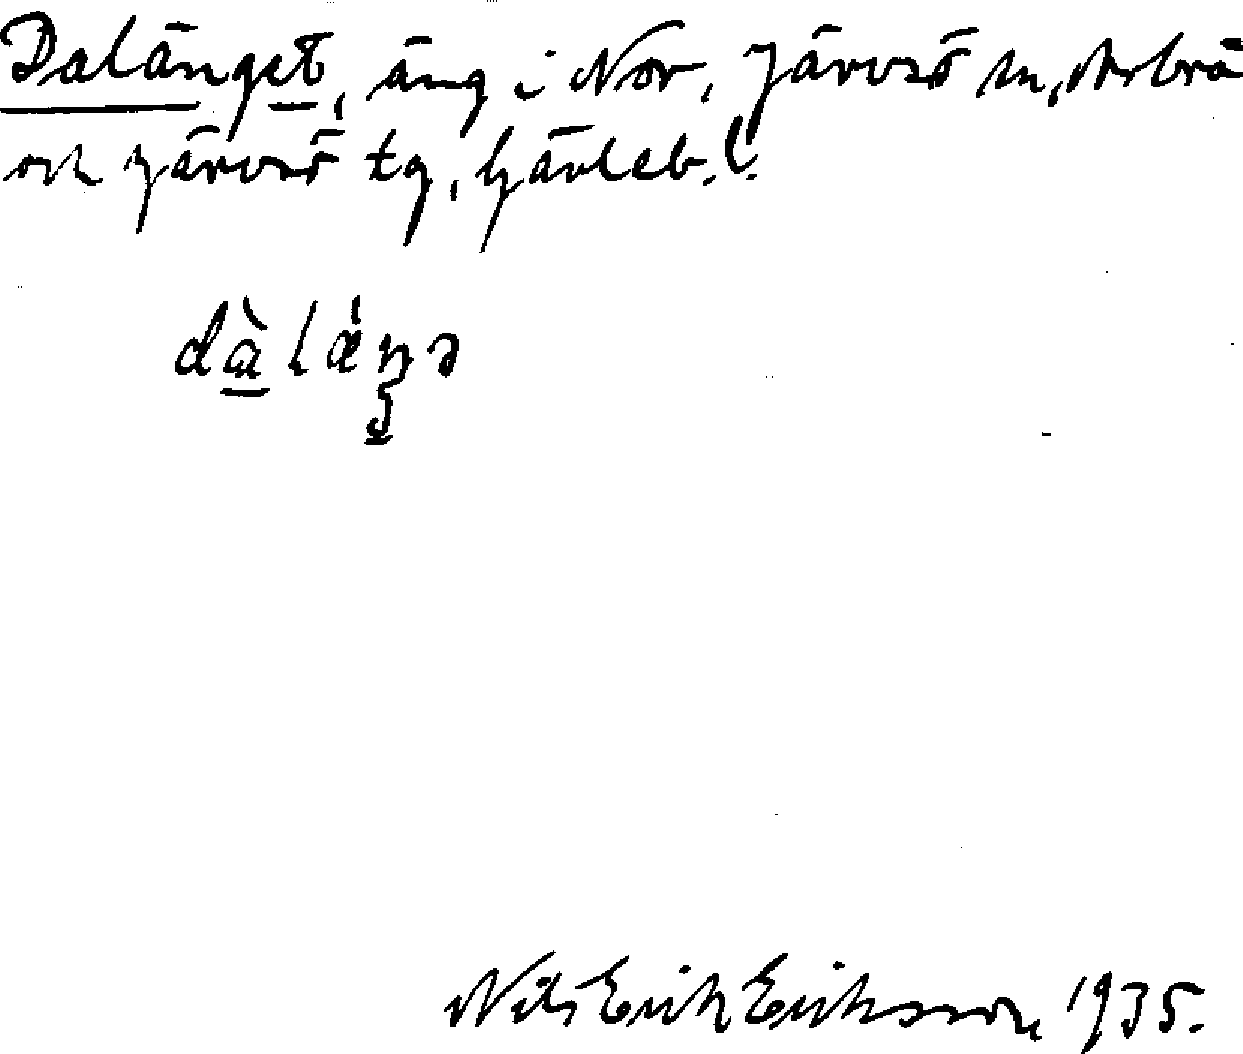 Dalänget, äng i Nor, Järvsö sn, Arbrå
och Järvsö tg, Gävleb. l.
dàlǽŋə
Nils Erik Eriksson 1935.